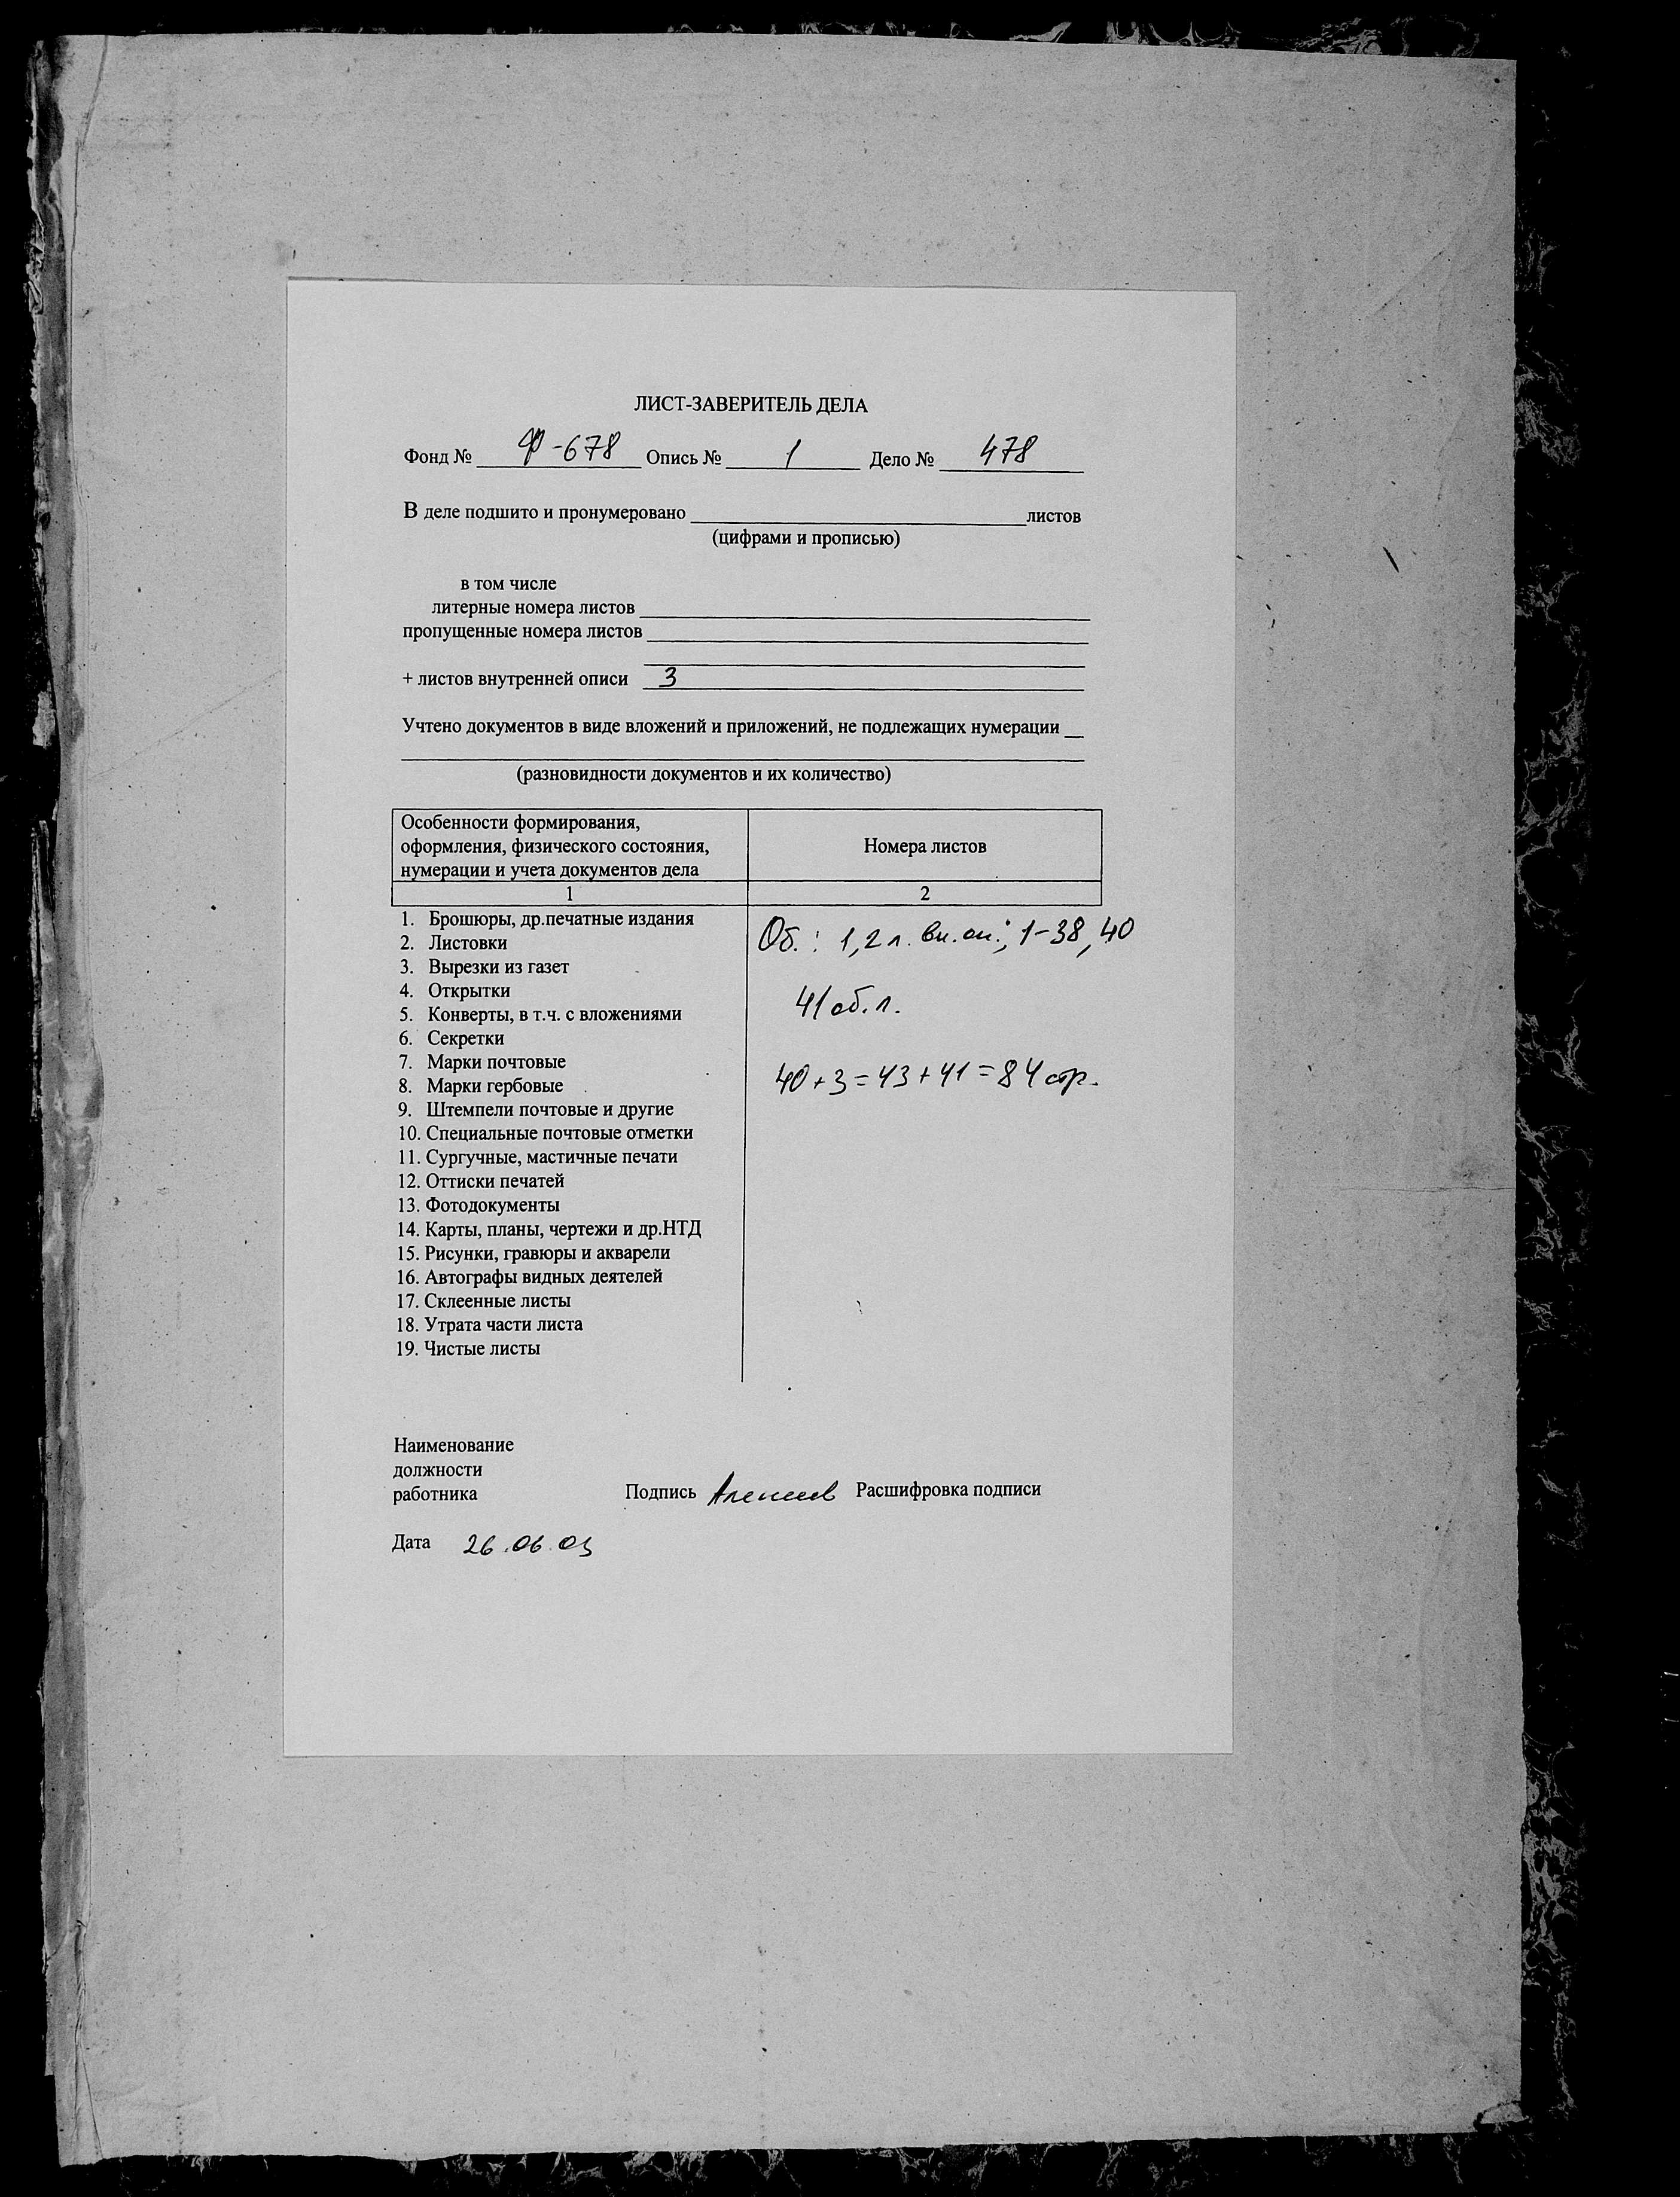 ЛИСТ-ЗАВЕРИТЕЛЬ ДЕЛА
Фонд № Ф-678 Опись № 1 Дело № 478
В деле подшито и пронумеровано листов
(цифрами и прописью)
в том числе
литерные номера листов
пропущенные номера листов
+ листов внутренней описи 3
Учтено документов в виде вложений и приложений, не подлежащих нумерации
(разновидности документов и их количество)
Особенности формирования,
оформления, физического состояния,
нумерации и учета документов дела
Номера листов
1 2
1. Брошюры, др.печатные издания
2. Листовки
3. Вырезки из газет
4. Открытки
5. Конверты, в т.ч. с вложениями
6. Секретки
7. Марки почтовые
8. Марки гербовые
9. Штемпели почтовые и другие
10. Специальные почтовые отметки
11. Сургучные, мастичные печати
12. Оттиски печатей
13. Фотодокументы
14. Карты, планы, чертежи и др.НТД
15. Рисунки, гравюры и акварели
16. Автографы видных деятелей
17. Склеенные листы
18. Утрата части листа
19. Чистые листы
Об.: 1,2 л. вн.оп.; 1-38, 40
41 об. л.
40+3=43+41=84 стр.
Наименование
должности
работника
Подпись Расшифровка подписи
Дата 26.06.03